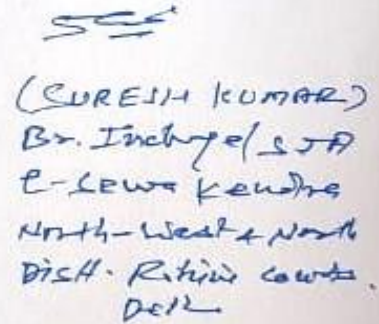 (SURESH KUMAR)
Br. Incharge/SJA
e-Sewa Kendra
North-West & North
Distt. Rohini Courts.
Delhi